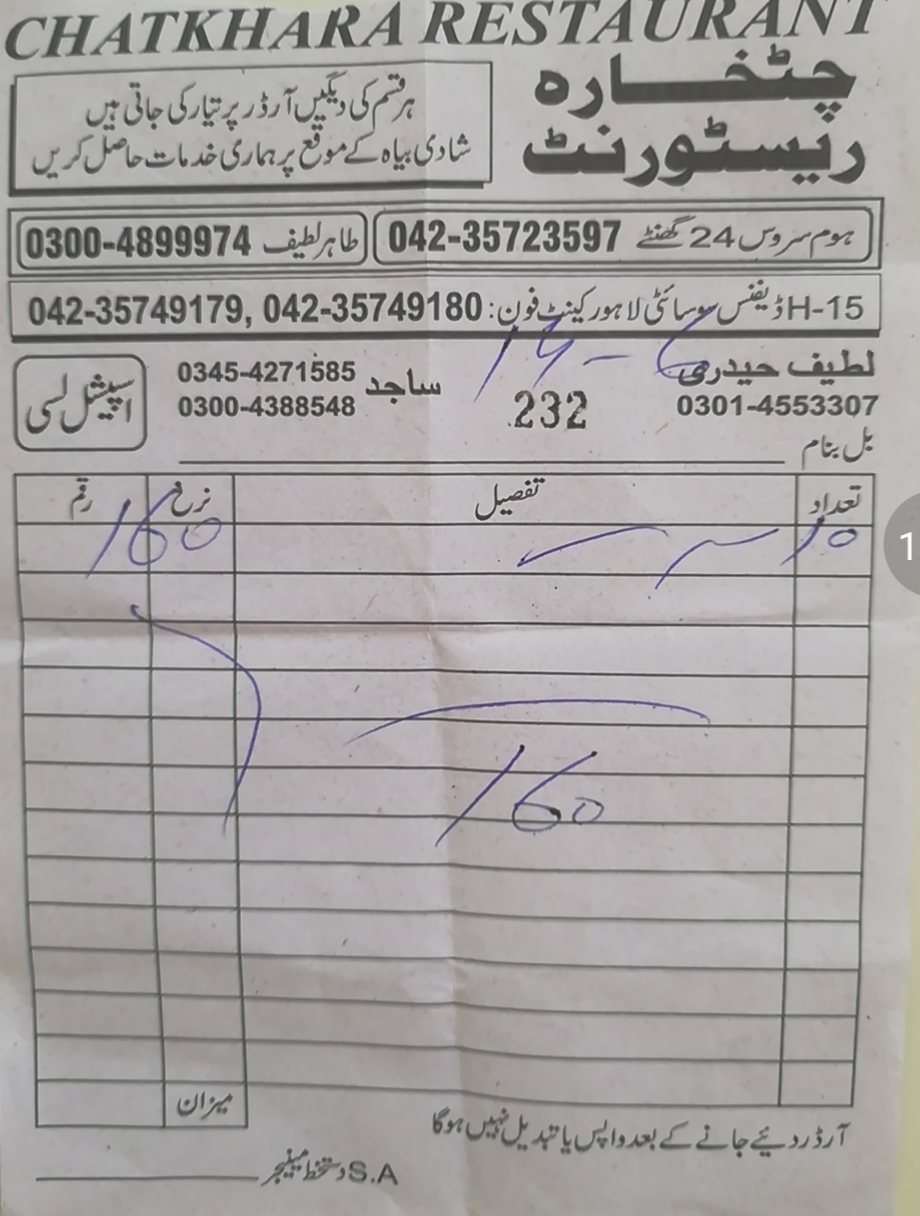 CHATKHARA RESTAURANT
چٹخارہ
ریسٹورنٹ
ہر قسم کی دیگیں آرڈر پر تیار کی جاتی ہیں
شادی بیاہ کے موقع پر ہماری خدمات حاصل کریں
ہوم سروس 24 گھنٹے 042-35723597
طاہر لطیف 0300-4899974
H-15 ڈیفنس سوسائٹی لاہور کینٹ فون: 042-35749179, 042-35749180
لطیف حیدری
0301-4553307
14-6
232
ساجد 0345-4271585
0300-4388548
اسپیشل لسی
بل بنام
تعداد تفصیل نرخ رقم
10 160
160
میزان
آرڈر دئیے جانے کے بعد واپس یا تبدیل نہیں ہوگا
S.A دستخط مینیجر
1